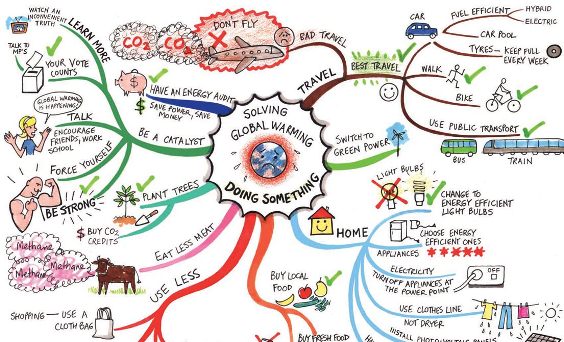 SOLVING
GLOBAL WARMING
DOING SOMETHING
TRAVEL
BAD TRAVEL
DON'T FLY
CO2
CO2
BEST TRAVEL
CAR
FUEL EFFICIENT
HYBRID
ELECTRIC
CAR POOL
TYRES - KEEP FULL
EVERY WEEK
WALK
BIKE
USE PUBLIC TRANSPORT
BUS
TRAIN
SWITCH TO
GREEN POWER
HOME
LIGHT BULBS
NO
CHANGE TO
ENERGY EFFICIENT
LIGHT BULBS
CHOOSE ENERGY
EFFICIENT ONES
APPLIANCES
ELECTRICITY
TURN OFF APPLIANCES AT
THE POWER POINT
OFF
USE CLOTHES LINE
NOT DRYER
BUY LOCAL
FOOD
BUY FRESH FOOD
USE LESS
SHOPPING - USE A
CLOTH BAG
EAT LESS MEAT
Methane
Methane
PLANT TREES
$ BUY CO2
CREDITS
BE A CATALYST
LEARN MORE
WATCH AN
INCONVENIENT
TRUTH
TALK TO
MP'S
YOUR VOTE
COUNTS
GLOBAL WARMING
IS HAPPENING!
TALK
ENCOURAGE
FRIENDS, WORK
SCHOOL
FORCE YOURSELF
BE STRONG
HAVE AN ENERGY AUDIT
$
SAVE POWER, SAVE
MONEY